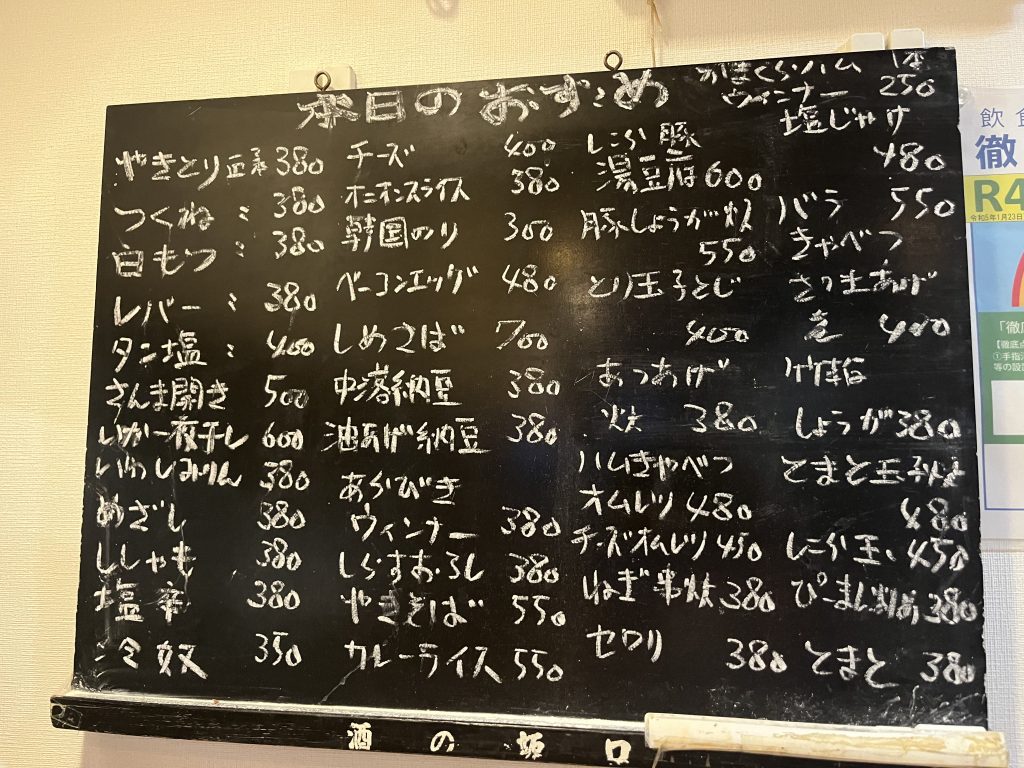 本日のおすすめ
やきとり 正系 380
つくね 〃 380
白もつ 〃 380
レバー 〃 380
タン塩 〃 400
さんま開き 500
いか一夜干し 600
いわしみりん 380
めざし 380
ししゃも 380
塩辛 380
冷奴 350
チーズ 400
オニオンスライス 380
韓国のり 300
ベーコンエッグ 480
しめさば 700
中落納豆 380
油あげ納豆 380
あらびき
ウィンナー 380
しらすおろし 380
やきそば 550
カレーライス 550
にら豚
湯豆腐 600
豚しょうが炊
550
とり玉子とじ
400
あつあげ
炊 380
ハムきゃべつ
オムレツ 480
チーズオムレツ 450
ねぎ串炊 380
セロリ 380
かまくらハム 1本
ウィンナー 250
塩じゃけ
480
バラ 550
きゃべつ
さつま
400
竹輪
しょうが 380
とまと玉子
480
にら玉 450
ぴーまん 380
とまと 380
酒の坂口
飲食
徹
R4
令和5年1月23日
「徹
【徹底点
①手指
等の設